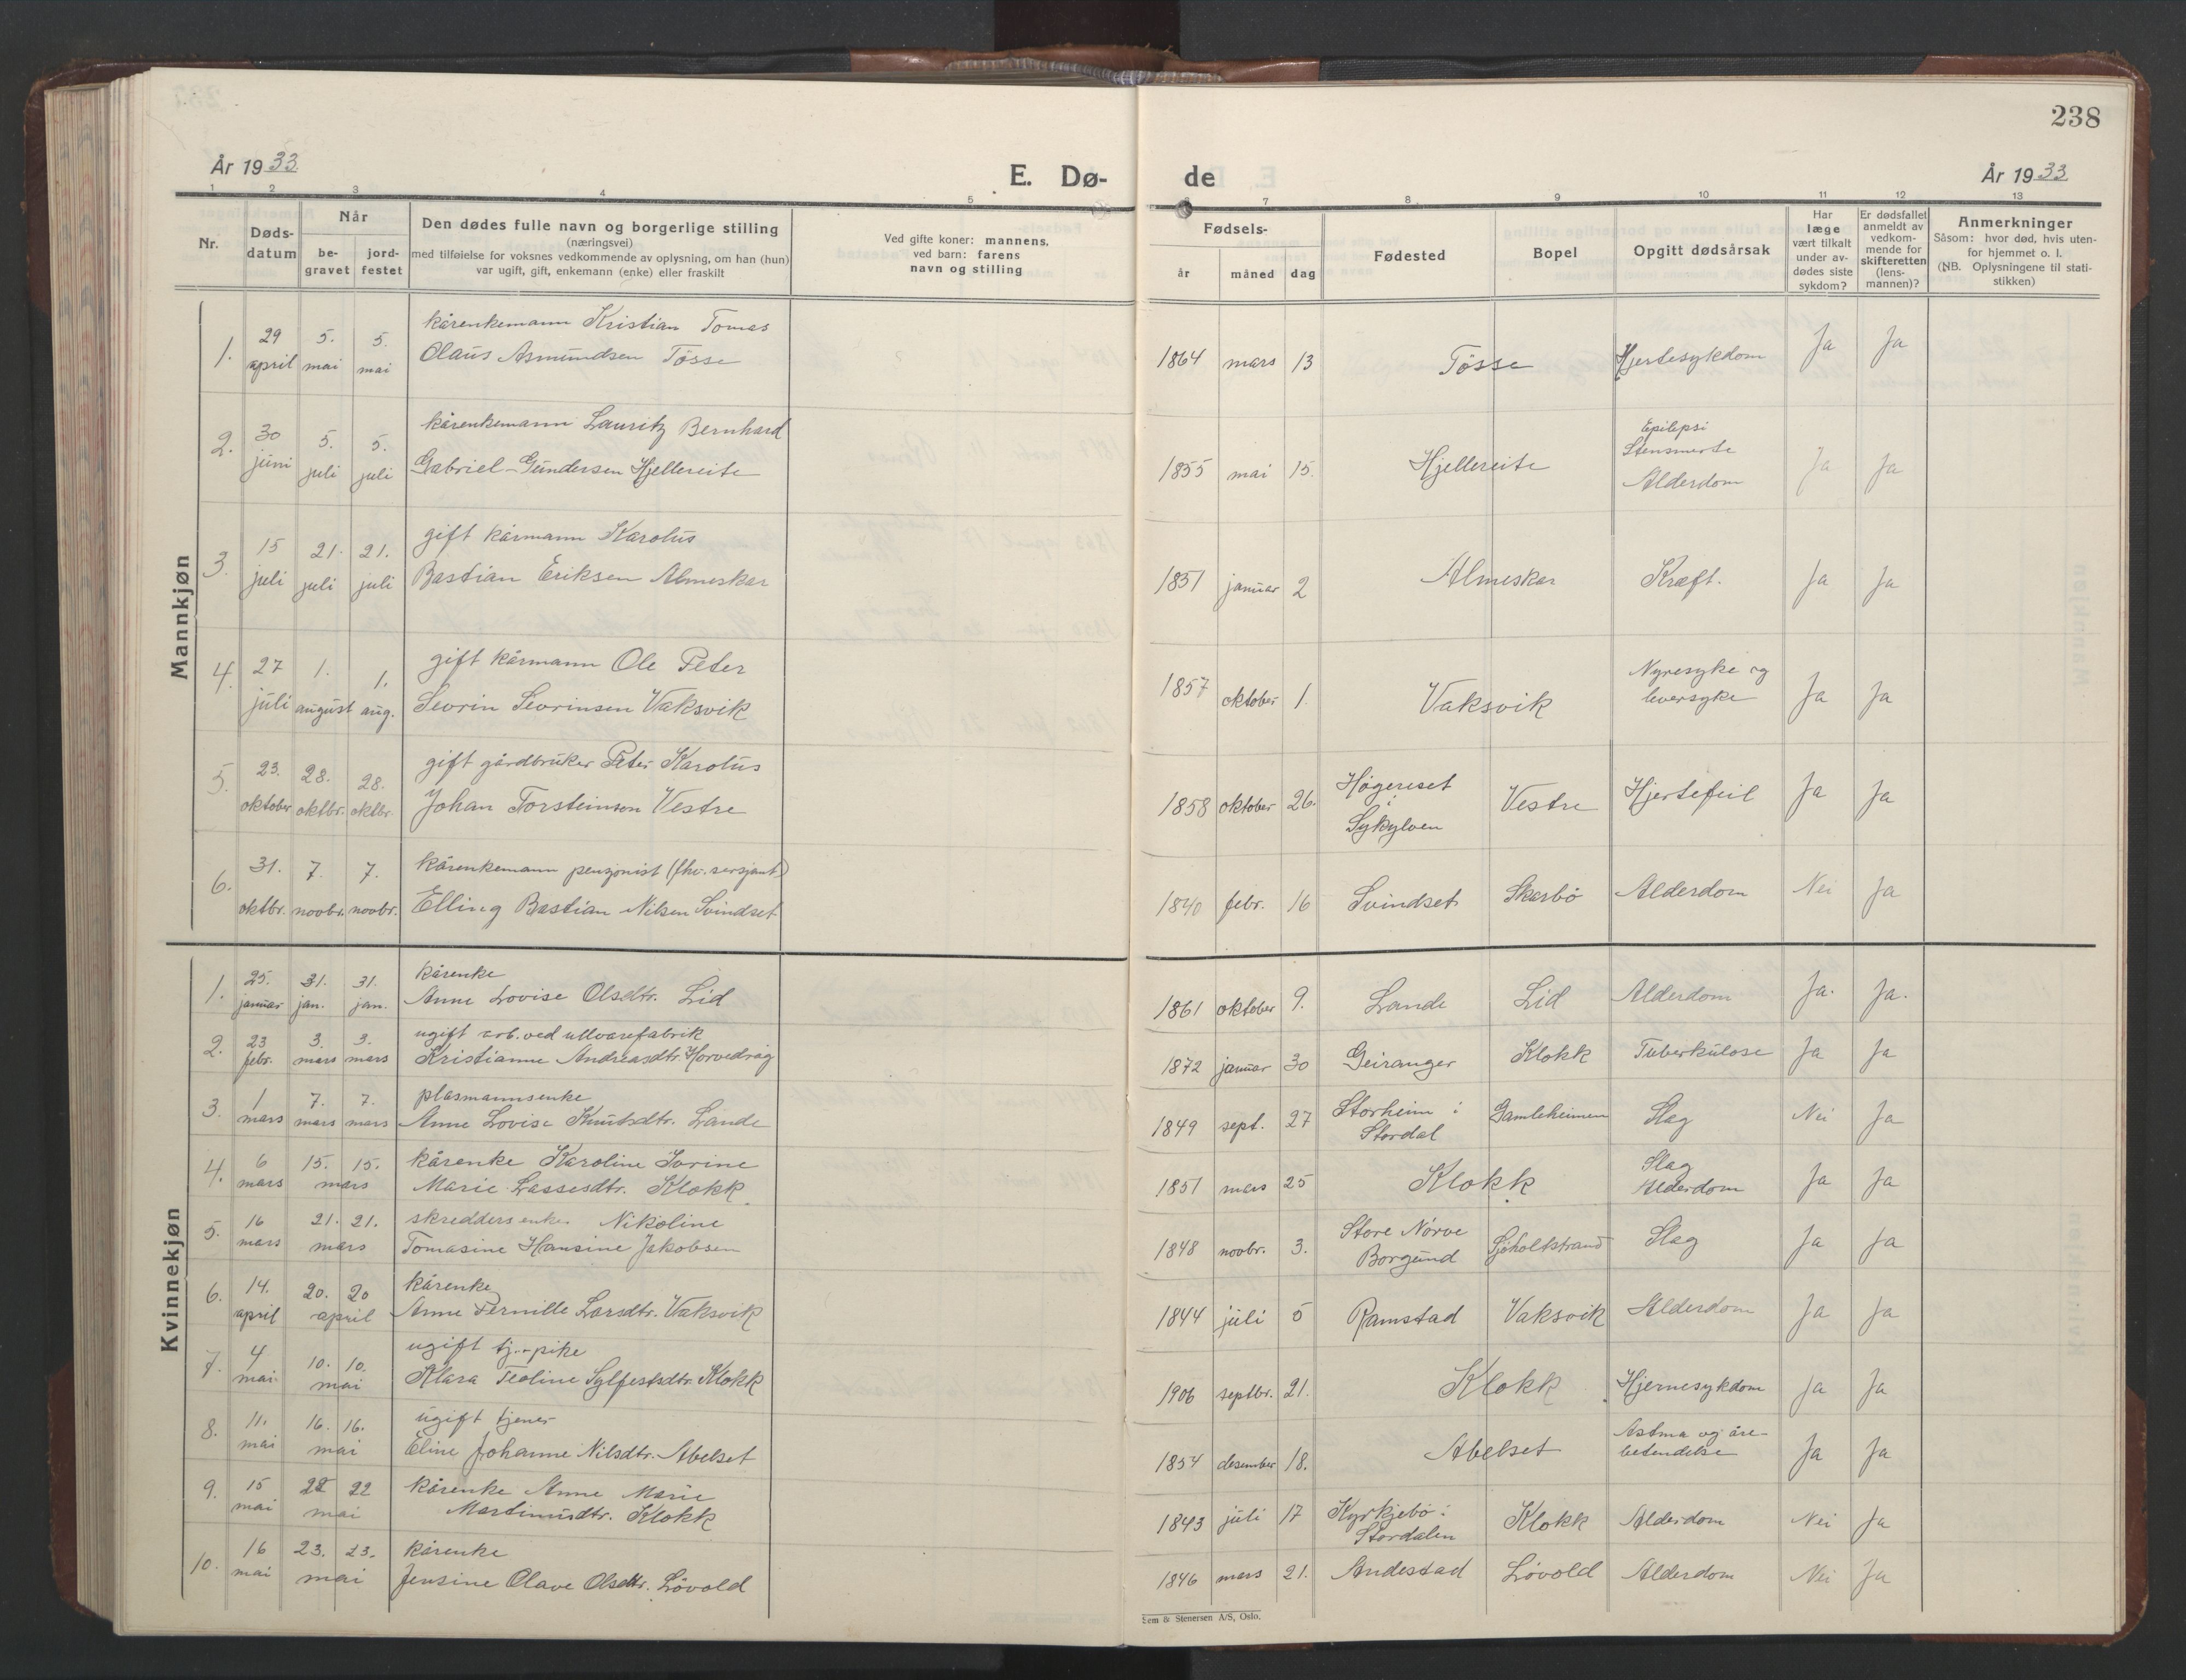 238
År 1933.
E. Dø-
de
År 1933.
1 2 3 4 5 7 8 9 10 11 12 13
Nr.
Døds-
datum
Når
be-
gravet
jord-
festet
Den dødes fulle navn og borgerlige stilling
(næringsvei)
med tilføielse for voksnes vedkommende av oplysning, om han (hun)
var ugift, gift, enkemann (enke) eller fraskilt
Ved gifte koner: mannens,
ved barn: farens
navn og stilling
Fødsels-
år måned dag
Fødested
Bopel
Opgitt dødsårsak
Har
læge
vært tilkalt
under av-
dødes siste
sykdom?
Er dødsfallet
anmeldt av
vedkom-
mende for
skifteretten
(lens-
mannen)?
Anmerkninger
Såsom: hvor død, hvis uten-
for hjemmet o. l.
(NB. Oplysningene til stati-
stikken)
Mannkjøn
1. 29 april 5. mai 5. mai kårenkemann Kristian Tomas
Olaus Asmundsen Tøsse 1864 mars 13 Tøsse Hjertesykdom Ja Ja
2. 30 juni 5. juli 5. juli kårenkemann Lauritz Bernhard
Gabriel Gundersen Hjellereite 1855 mai 15. Hjellereite Epilepsi
Stensmerte
Alderdom Ja Ja
3. 15 juli 21. juli 21. juli gift kårmann Karolus
Bastian Eriksen Almeskar 1851 januar 2 Almeskar Kræft. Ja Ja
4. 27 juli 1. august 1. aug. gift kårmann Ole Peter
Sevrin Sevrinsen Vaksvik 1857 oktober 1. Vaksvik Nyresyke og
leversyke Ja Ja
5. 23. oktober 28. oktbr. 28. oktbr. gift gårdbruker Peter Karolus
Johan Torsteinson Vestre 1858 oktober 26. Høgereset
i
Sykylven Vestre Hjertefeil Ja Ja
6. 31. oktbr. 7. novbr. 7. novbr. kårenkemann penzjonist (fhv. sersjant)
Elling Bastian Nilsen Svindset 1840 febr. 16 Svindset Skarbø Alderdom Nei Ja
Kvinnekjøn
1. 25. januar 31. jan. 31. jan. kårenke
Anne Lovise Olsdtr. Lid 1861 oktober 9. Lande Lid Alderdom Ja. Ja.
2. 23 febr. 3. mars 3. mars ugift arb. ved ullvarefabrik
Kristianne Andreasdtr. Horvedrag 1872 januar 30 Geiranger Klokk Tuberkulose Ja Ja
3. 1 mars 7. mars 7. mars plasmannsenke
Anne Lovise Knutsdtr. Lande 1849 sept. 27 Storheim i
Stordal Gamleheimen Slag Nei Ja
4. 6 mars 15. 15. mars kårenke Karoline Sørine
Marie Lassesdtr. Klokk 1851 mars 25 Klokk Slag
Alderdom Ja Ja
5. 16 mars 21. 21. mars skreddersenke Nikoline
Tomasine Hansine Jakobsen 1848 novbr. 3. Store Nørve
Borgund Sjøholtstrand Slag Ja Ja
6. 14. april 20. 20 april kårenke
Anne Pernille Larsdtr. Vaksvik 1844 juli 5 Ramstad Vaksvik Alderdom Ja Ja
7. 4 mai 10. 10. mai ugift tj.-pike
Klara Teoline Sylfestsdtr. Klokk 1906 septbr. 21. Klokk Hjernesykdom Ja Ja
8. 11. mai 16. 16. mai ugift tjener
Eline Johanne Nilsdtr. Abelset 1854 desember 18. Abelset Astma og åre-
betendelse Ja Ja
9. 15 mai 22 22 mai kårenke Anne Marie
Martinusdtr. Klokk 1843 juli 17 Kyrkjebø i
Stordalen Klokk Alderdom Nei Ja
10. 16 mai 23. 23. mai kårenke
Jensine Olave Olsdtr. Løvold 1846 mars 21. Andestad Løvold Alderdom Nei Ja
Sem & Stenersen A/S, Oslo.